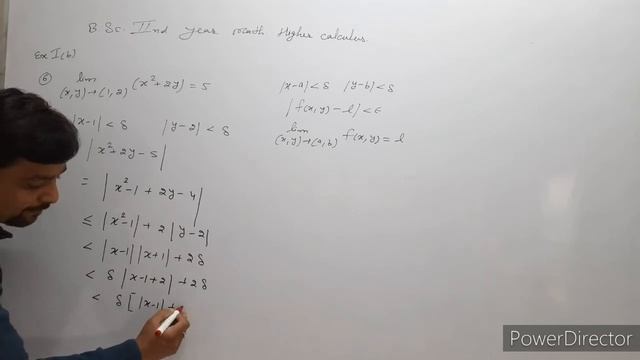 B.Sc. IInd year math Higher calculus.
Ex I(b)
⑥ lim (x,y)→(1,2) (x²+2y) = 5
|x-1| < δ |y-2| < δ
| x²+2y-5 |
= | x²-1 + 2y-4 |
≤ |x²-1| + 2 |y-2|
< |x-1| |x+1| + 2δ
< δ |x-1+2| + 2δ
< δ [ |x-1| +
|x-a| < δ |y-b| < δ
| f(x,y) - l | < ε
lim (x,y)→(a,b) f(x,y) = l
PowerDirector